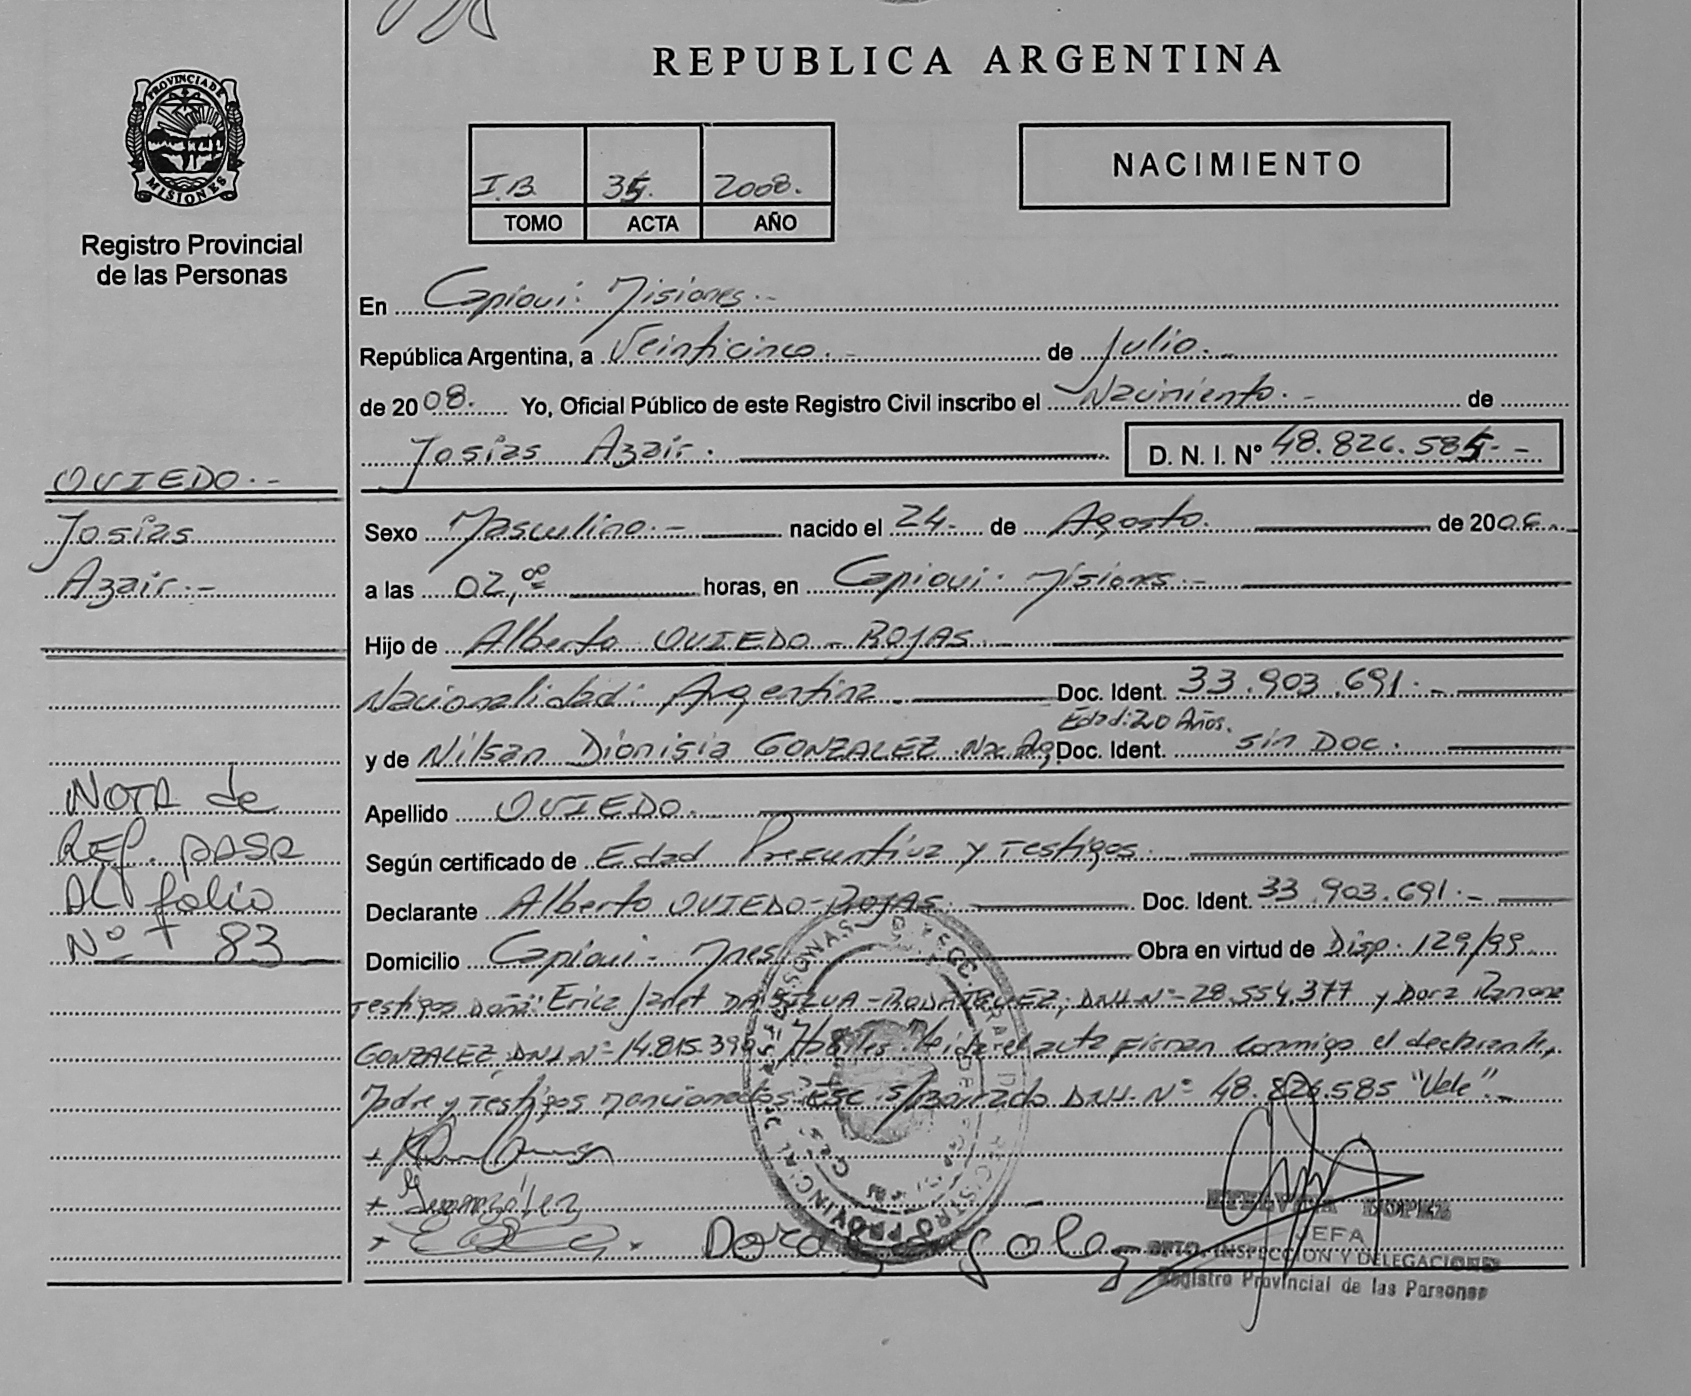 REPUBLICA ARGENTINA
PROVINCIA DE
MISIONES
Registro Provincial
de las Personas
I.B. 35. 2008.
TOMO ACTA AÑO
NACIMIENTO
En Capiovi. Misiones.-
República Argentina, a Veinticinco.- de Julio.-
de 2008. Yo, Oficial Público de este Registro Civil inscribo el Nacimiento.- de
Josías Azair. D. N. I. Nº 48.826.585.-
OVIEDO.-
Josías
Azair.-
Sexo Masculino.- nacido el 24- de Agosto. de 2006.-
a las 02,00 horas, en Capiovi. Misiones.-
Hijo de Alberto OVIEDO - ROJAS.
Nacionalidad: Argentina Doc. Ident. 33.903.691.-
Edad: 20 Años.
y de Nilsan Dionisia GONZALEZ. Nac. Arg. Doc. Ident. Sin Doc.
Apellido OVIEDO.
Según certificado de Edad Presuntiva y Testigos.
Declarante Alberto OVIEDO-ROJAS. Doc. Ident. 33.903.691.-
Domicilio Capiovi - Mnes Obra en virtud de Disp. 129/99
NOTA de
REF. pasa
Al folio
Nº 83
Testigos Doña: Erica Janet DA SILVA-RODRIGUEZ, DNI.Nº-28.554.377 y Dora Ramona
GONZALEZ, DNI.Nº-14.815.39 Leída el acta Firman conmigo el declarante,
Madre y Testigos mencionados. Esc. s/borrado DNI. Nº 48.826.585 "Vale".-
González
Dora
ETELVINA LOPEZ
JEFA
DPTO. INSPECCION Y DELEGACIONES
Registro Provincial de las Personas